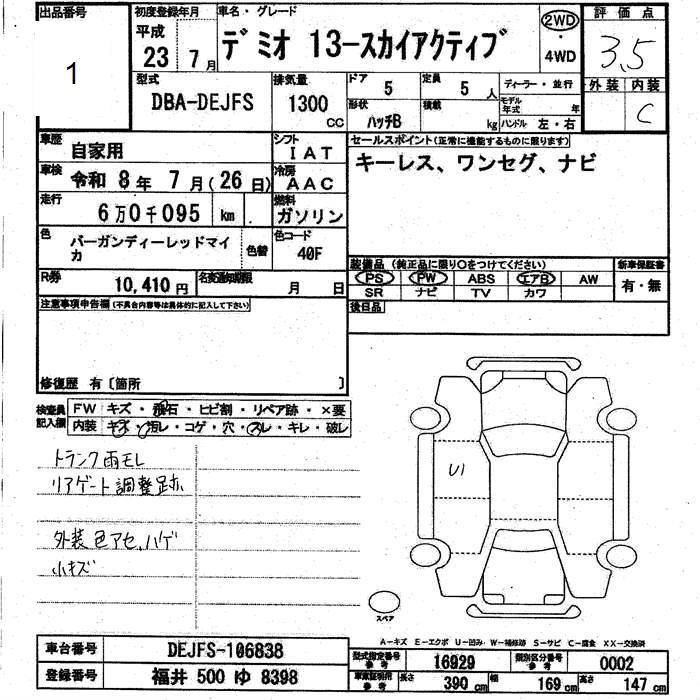 出品番号
1
初度登録年月
平成
23 年 7 月
車名・グレード
デミオ 13-スカイアクティブ
2WD
・
4WD
評価点
3.5
外装 内装
C
型式
DBA-DEJFS
排気量
1300
CC
ドア
5
定員
5 人
形状
ハッチB
積載
kg
ディーラー・並行
モデル年式 年
ハンドル 左・右
車歴
自家用
シフト
IAT
車検
令和 8年 7月(26日)
冷房
AAC
走行
6万0千095 km
燃料
ガソリン
色
バーガンディーレッドマイカ
色替
色コード
40F
R券
10,410円
名変通知期限
月 日
セールスポイント(正常に機能するものに限ります)
キーレス、ワンセグ、ナビ
装備品(純正品に限り○をつけてください)
PS PW ABS エアB AW
SR ナビ TV カワ
新車保証書
有・無
後日品
注意事項申告欄(不具合内容等は具体的に記入して下さい)
修復歴 有〔箇所 〕
検査員記入欄
FW キズ・飛石・ヒビ割・リペア跡・×要
内装 キズ・汚レ・コゲ・穴・スレ・キレ・破レ
トランク雨モレ
リアゲート調整跡
外装色アセ、ハゲ
小キズ
U1
スペア
A-キズ E-エクボ U-凹み W-補修跡 S-サビ C-腐食 XX-交換済
車台番号
DEJFS-106838
登録番号
福井 500 ゆ 8398
型式指定番号
参考
16929
類別区分番号
参考
0002
車庫証明用
参考
長さ 390 cm
幅 169 cm
高さ 147 cm